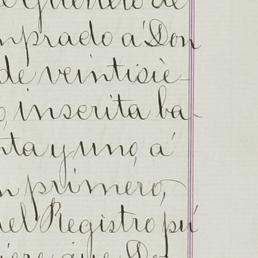 Guerrero de
mprado a Don
de veintisie
inscrita ba-
nta y uno, á
n primero,
del Registro pú